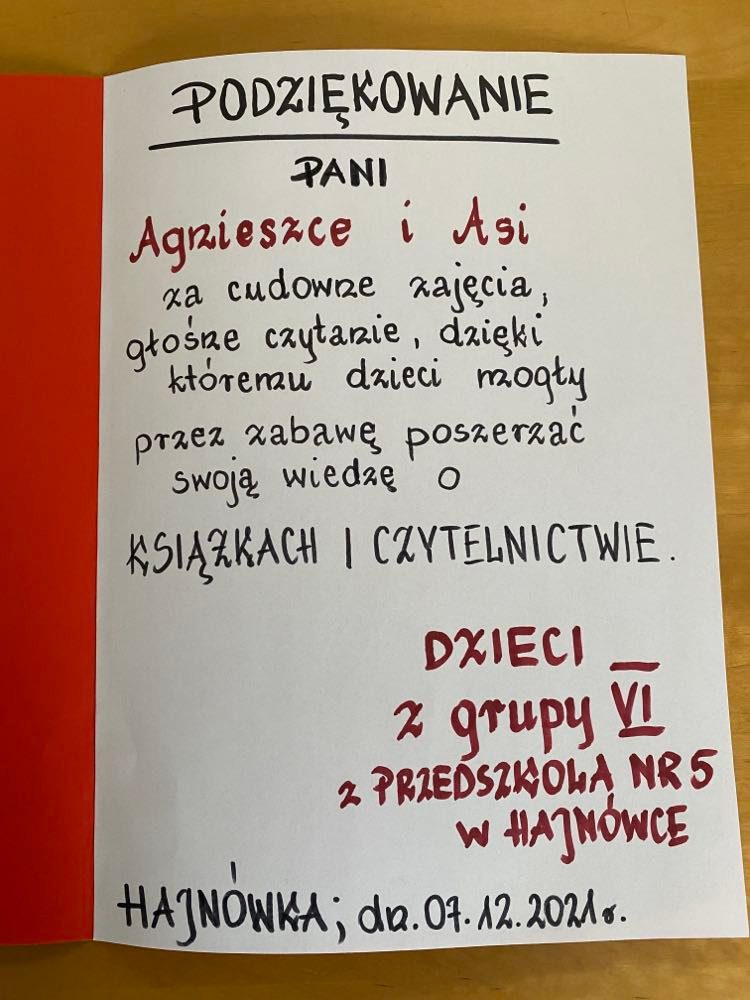 PODZIĘKOWANIE
PANI
Agnieszce i Asi
za cudowne zajęcia,
głośne czytanie, dzięki
któremu dzieci mogły
przez zabawę poszerzać
swoją wiedzę o
KSIĄŻKACH I CZYTELNICTWIE.
DZIECI
z grupy VI
z PRZEDSZKOLA NR 5
w HAJNÓWCE
HAJNÓWKA; dn. 07.12.2021r.